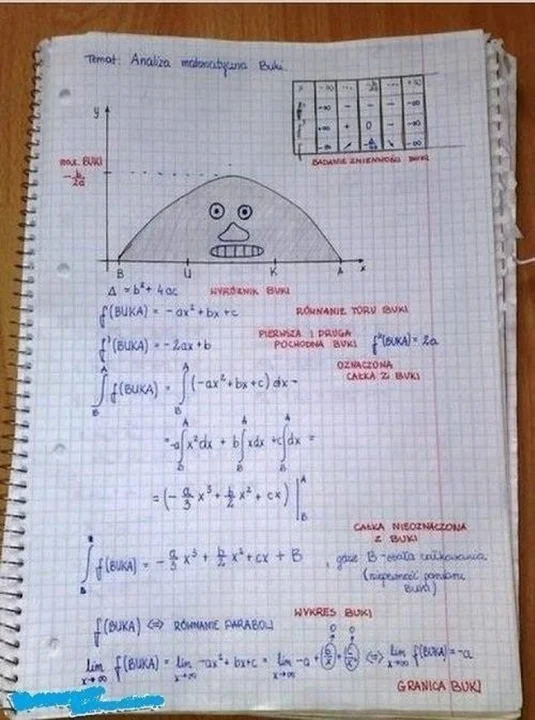 Temat: Analiza matematyczna Buki.
x -∞ ... ... +∞
-∞ - - - -∞
+∞ + 0 - -∞
-∞ ↗ ↘ -∞
BADANIE ZMIENNOŚCI BUKI
y
max. BUKI
-b/2a
B U K A x
Δ = b² + 4ac WYRÓŻNIK BUKI
f(BUKA) = -ax² + bx + c RÓWNANIE TORU BUKI
f'(BUKA) = -2ax + b PIERWSZA I DRUGA POCHODNA BUKI f''(BUKA) = 2a
OZNACZONA CAŁKA Z BUKI
∫_B^A f(BUKA) = ∫_B^A (-ax² + bx + c) dx =
= -a∫_B^A x² dx + b∫_B^A x dx + c∫_B^A dx =
= (-a/3 x³ + b/2 x² + cx) |_B^A
CAŁKA NIEOZNACZONA Z BUKI
∫ f(BUKA) = -a/3 x³ + b/2 x² + cx + B , gdzie B - stała całkowania
(niepewność pomiaru Buki)
WYKRES BUKI
f(BUKA) <=> RÓWNANIE PARABOLI
0 0
lim x→∞ f(BUKA) = lim x→∞ -ax² + bx + c = lim x→∞ -a + b/x + c/x² <=> lim x→∞ f(BUKA) = -a
GRANICA BUKI